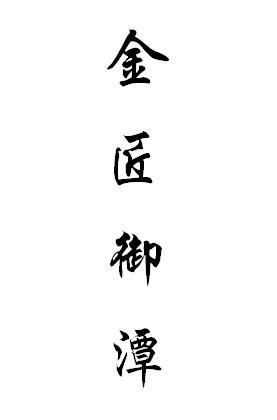 金匠御潭